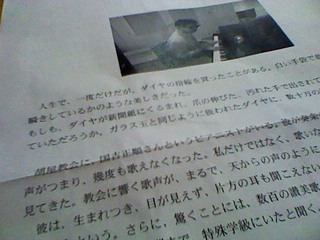 人生で、一度だけだが、ダイヤの指輪を買ったことがある。白い手袋で
瞬きしているかのような美しさだった。
もしも、ダイヤが新聞紙にくるまれ、爪の伸びた、汚れた手で出されて
ていただろうか。ガラス玉と同じように扱われたダイヤに、数十万の
部屋教会に、国吉正顕さんというピアニストがいる。
声がつまり、幾度も歌えなくなった。私だけではなく、歌い
見てきた。教会に響く歌声が、まるで、天からの声のように
彼は、生まれつき、目が見えず、片方の耳も聞こえない
という。さらに、驚くことには、数百の讃美歌
特殊学級にいたと聞く